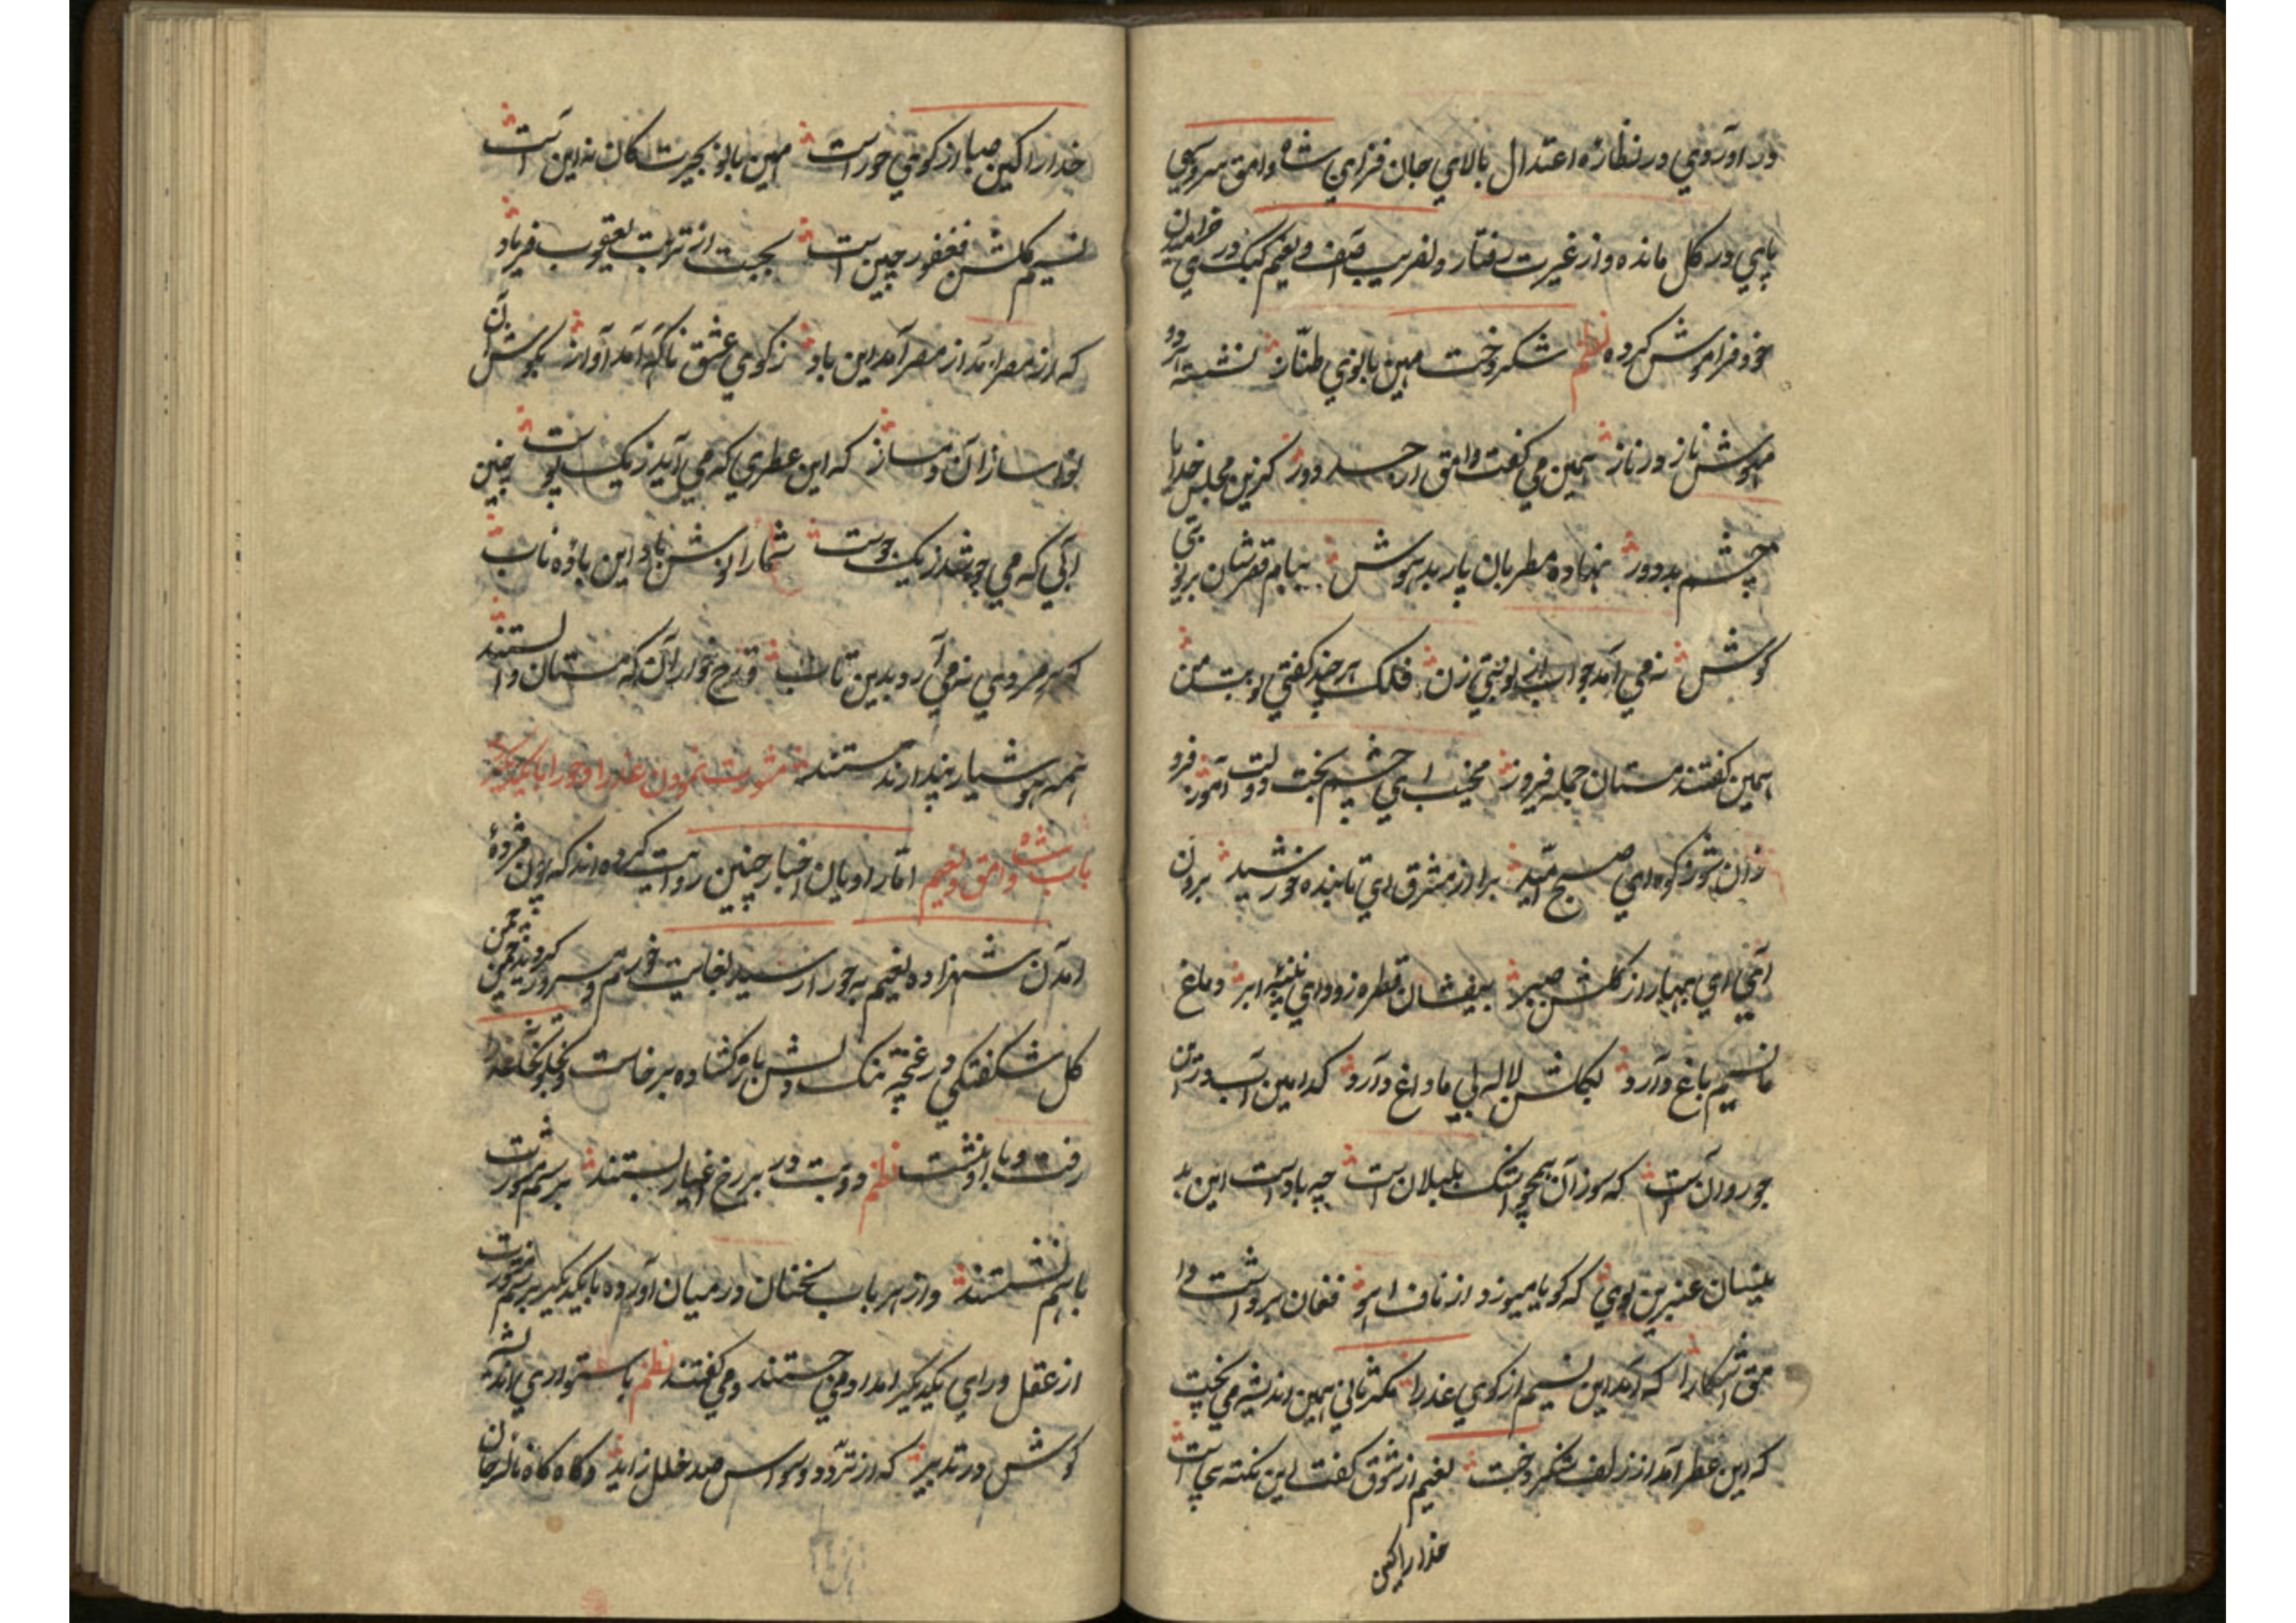 در اوردی در نظاره اعتدال بالای جان فزای شاه وامق سرو سهی
پای در کل مانده و از غیرت رفتار دلفریب صف و نعیم کبک دری خرامیدن
خود فراموش کرده نظم شکر دخت مهین بانوی طناز نشسته
مهوش ناز در ناز همین می کفت وامق از حسد دور کزین مجلس خدایا
چشم بد دور نهاده مطربان پار بد هوش ببام قصرشان بر نوبتی
کوش نه می آمد جواب از نوبتی زن فلک هر چند کفتی نوبت من
همین کفتند مستان جمله فیروز مخسب ای چشم بخت دولت آموز فرو
زان شو ز کوه ای صبح امید برا از مشرق ای تابنده خورشید برون
آی ای بهار از کلشن صبر بیفشان قطره زود ای پنبه ابر دماغ
ما نسیم باغ دارد بکلشن لاله بی ما داغ دارد کدامین آب در این
جو روانست که سوزان همچو اشک بلبلان است چه بادست این بد
ینسان عنبرین بوی که کویا میوزد از ناف اهو فغان برداشت وا
مق اشکارا که آمد این نسیم از کوی عذرا مکر ثانی همین اندیشه می پخت
که این عطر آمد از زلف شکر دخت نعیم از شوق کفت این نکته بیجاست
خدا را کین
خدا را کین صبا از کوی حور است مهین بانو بحیرت کان نه این است
نسیم کلشن فغفور چین است بجست از تربت یعقوب فریاد
که از مصر آمد از مصر آمد این باد ز کوی عشق ناکه آمد آواز بکوش آن
نوا سازان دمساز که این عطری که می آید ز یک بوست چنین
آبی که می جوشد ز یک جوست شما را نوش باد این باده ناب
که هر مردی نه می آرد بدین تاب قدح خواران که مستان و الستند
همه هوشیار پندارند مستند مشورت نمودن عذرا و حورا با یکدیکر
باب شاه وامق و نعیم اما راویان اخبار چنین روایت کرده اند که چون مژده
آمدن شهزاده نعیم به حورا رسید بغایت خورم و مسرور کردید چمن چمن
کل شکفتکی در غنچه تنک دلش باز کشاده برخاست و بخلوتخانه عذرا
رفت و با او نشست نظم دو بت در بر رخ اغیار بستند برسم مشورت
باهم نشستند و از هر باب سخنان در میان آورده با یکدیکر برسم مشورت
از عقل و رای یکدیکر امداد می جستند و می کفتند نظم باستواری اندیشه
کوش در تدبیر که از تردد و وسواس صد خلل زاید و کاه کاه ناله جان